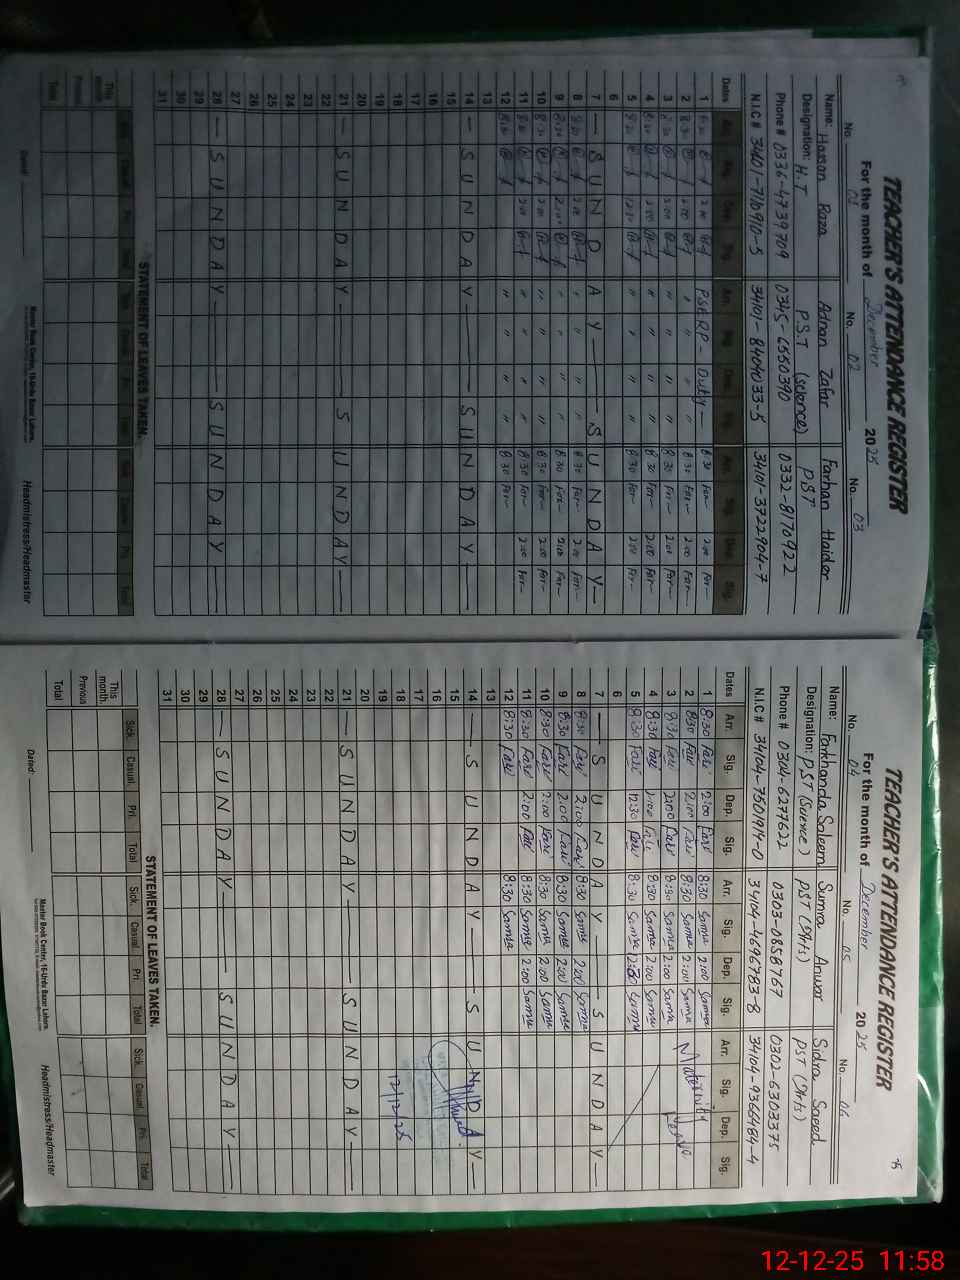 TEACHER'S ATTENDANCE REGISTER
For the month of December 2025
No. 01 No. 02 No. 03
Name: Hassan Raza Adnan Zafar Farhan Haider
Designation: H.T P.S.T (science) PST
Phone # 0336-4739709 0345-6550390 0332-8170922
N.I.C # 34101-8404033-5 34101-3722904-7
Dates Arr. Sig. Dep. Sig. Arr. Sig. Dep. Sig. Arr. Sig. Dep. Sig.
1 8:30 2:00 PSERP - Duty - 8:30 Far- 2:00 Far-
2 8:30 2:00 " " " " 8:30 Far- 2:00 Far-
3 8:30 2:00 " " " " 8:30 Far- 2:00 Far-
4 8:30 2:00 " " " " 8:30 Far- 2:00 Far-
5 8:30 12:30 " " " " 8:30 Far- 2:00 Far-
6
7 — SUNDAY — SUNDAY —
8 8:30 2:00 " " " " 8:30 Far- 2:00 Far-
9 8:30 2:00 " " " " 8:30 Far- 2:00 Far-
10 8:30 2:00 " " " " 8:30 Far- 2:00 Far-
11 8:30 2:00 " " " " 8:30 Far- 2:00 Far-
12 8:30 " " " " 8:30 Far-
13
14 — SUNDAY — SUNDAY —
15
16
17
18
19
20
21 — SUNDAY — SUNDAY —
22
23
24
25
26
27
28 — SUNDAY — SUNDAY —
29
30
31
STATEMENT OF LEAVES TAKEN.
This month
Previous
Total
Dated:
Master Book Center, 16-Urdu Bazar Lahore.
Headmistress/Headmaster
TEACHER'S ATTENDANCE REGISTER
For the month of December 2025
No. 04 No. 05 No. 06
Name: Farkhanda Saleem Sumra Anwar Sidra Saeed
Designation: PST (Science) PST (Arts) PST (Arts)
Phone # 0304-6277622 0303-0858767 0302-6303375
N.I.C # 34104-7501914-0 34104-4696783-8 34104-9366484-4
Dates Arr. Sig. Dep. Sig. Arr. Sig. Dep. Sig. Arr. Sig. Dep. Sig.
1 8:30 2:00 8:30 Samra 2:00 Samra Maternity
2 8:30 2:00 8:30 Samra 2:00 Samra Leave
3 8:30 2:00 8:30 Samra 2:00 Samra
4 8:30 2:00 8:30 Samra 2:00 Samra
5 8:30 12:30 8:30 Samra 12:30 Samra
6
7 — SUNDAY — SUNDAY —
8 8:30 2:00 8:30 Samra 2:00 Samra
9 8:30 2:00 8:30 Samra 2:00 Samra
10 8:30 2:00 8:30 Samra 2:00 Samra
11 8:30 2:00 8:30 Samra 2:00 Samra
12 8:30 8:30 Samra
13
14 — SUNDAY — SUNDAY —
15
16
17
18 12/12/25
19
20
21 — SUNDAY — SUNDAY —
22
23
24
25
26
27
28 — SUNDAY — SUNDAY —
29
30
31
STATEMENT OF LEAVES TAKEN.
Sick. Casual. Pri. Total Sick. Casual. Pri Total Sick. Casual. Pri. Total
This month.
Previous
Total
Dated:
Master Book Center, 16-Urdu Bazar Lahore.
Headmistress/Headmaster
12-12-25 11:58